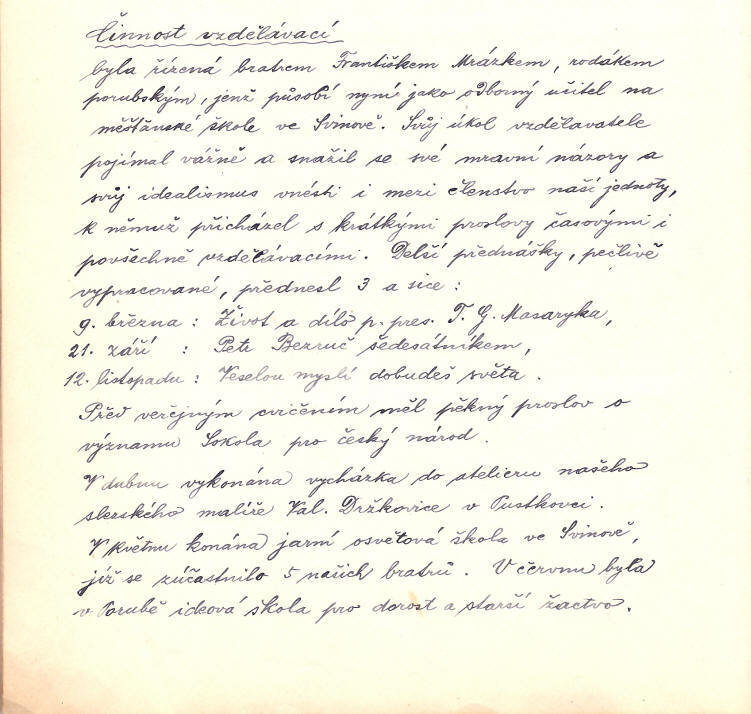 Činnost vzdělávací
byla řízená bratrem Františkem Mrázkem, rodákem
porubským, jenž působí nyní jako odborný učitel na
měšťanské škole ve Svinově. Svůj úkol vzdělavatele
pojímal vážně a snažil se své mravní názory a
svůj idealismus vnésti i mezi členstvo naší jednoty,
k němuž přicházel s krátkými proslovy časovými i
povšechně vzdělávacími. Delší přednášky, pečlivě
vypracované, přednesl 3 a sice :
9. března : Život a dílo p. pres. T. G. Masaryka,
21. září : Petr Bezruč šedesátníkem,
12. listopadu : Veselou myslí dobudeš světa .
Před veřejným cvičením měl pěkný proslov o
významu Sokola pro český národ .
V dubnu vykonána vycházka do atelieru našeho
slezského malíře Val. Držkovice v Pustkovci .
V květnu konána jarní osvětová škola ve Svinově,
jíž se zúčastnilo 5 našich bratrů . V červnu byla
v Porubě ideová škola pro dorost a starší žactvo .